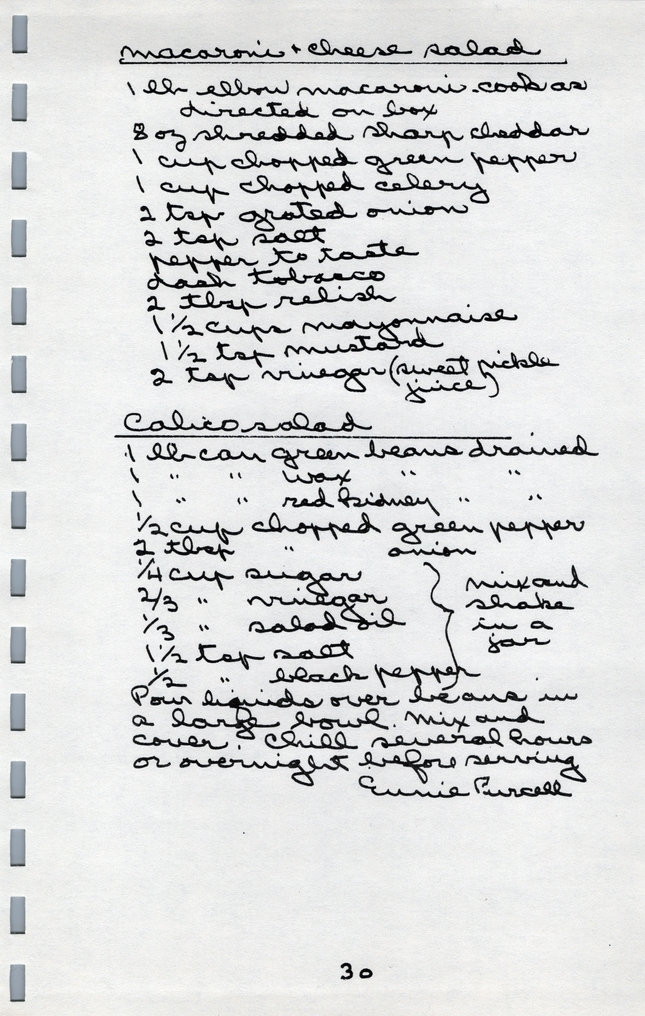 macaroni + cheese salad
1 lb elbow macaroni. cook as
directed on box
8 oz shredded sharp cheddar
1 cup chopped green pepper
1 cup chopped celery
2 tsp grated onion
2 tsp salt
pepper to taste
dash tobasco
2 tbsp relish
1 1/2 cups mayonnaise
1 1/2 tsp mustard
2 tsp vinegar (sweet pickle
juice)
Calico salad
1 lb can green beans drained
1 " " wax " "
1 " " red kidney " "
1/2 cup chopped green pepper
2 tbsp " onion
1/4 cup sugar
2/3 " vinegar
1/3 " salad oil
1 1/2 tsp salt
1/2 " black pepper
mix and
shake
in a
jar
Pour liquids over beans in
a large bowl. Mix and
cover. Chill several hours
or overnight before serving
Eunie Purcell
30